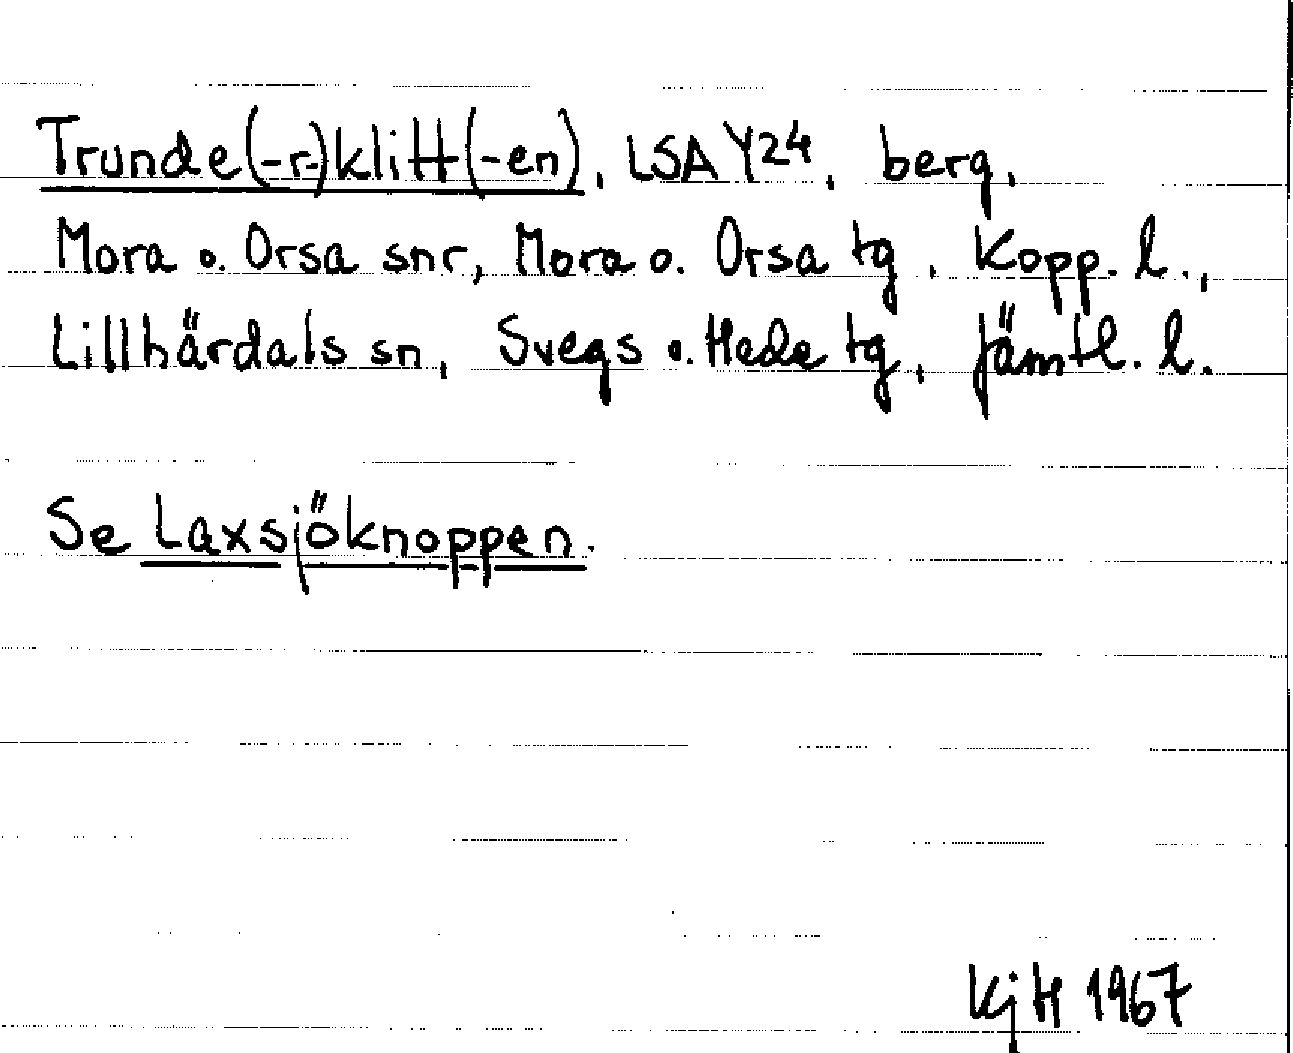 Trunde(-r-)klitt(-en), LSA Y24, berg,
Mora o. Orsa snr, Mora o. Orsa tg, Kopp. l.,
Lillhärdals sn, Svegs o. Hede tg, Jämtl. l.
Se Laxsjöknoppen.
KjH 1967